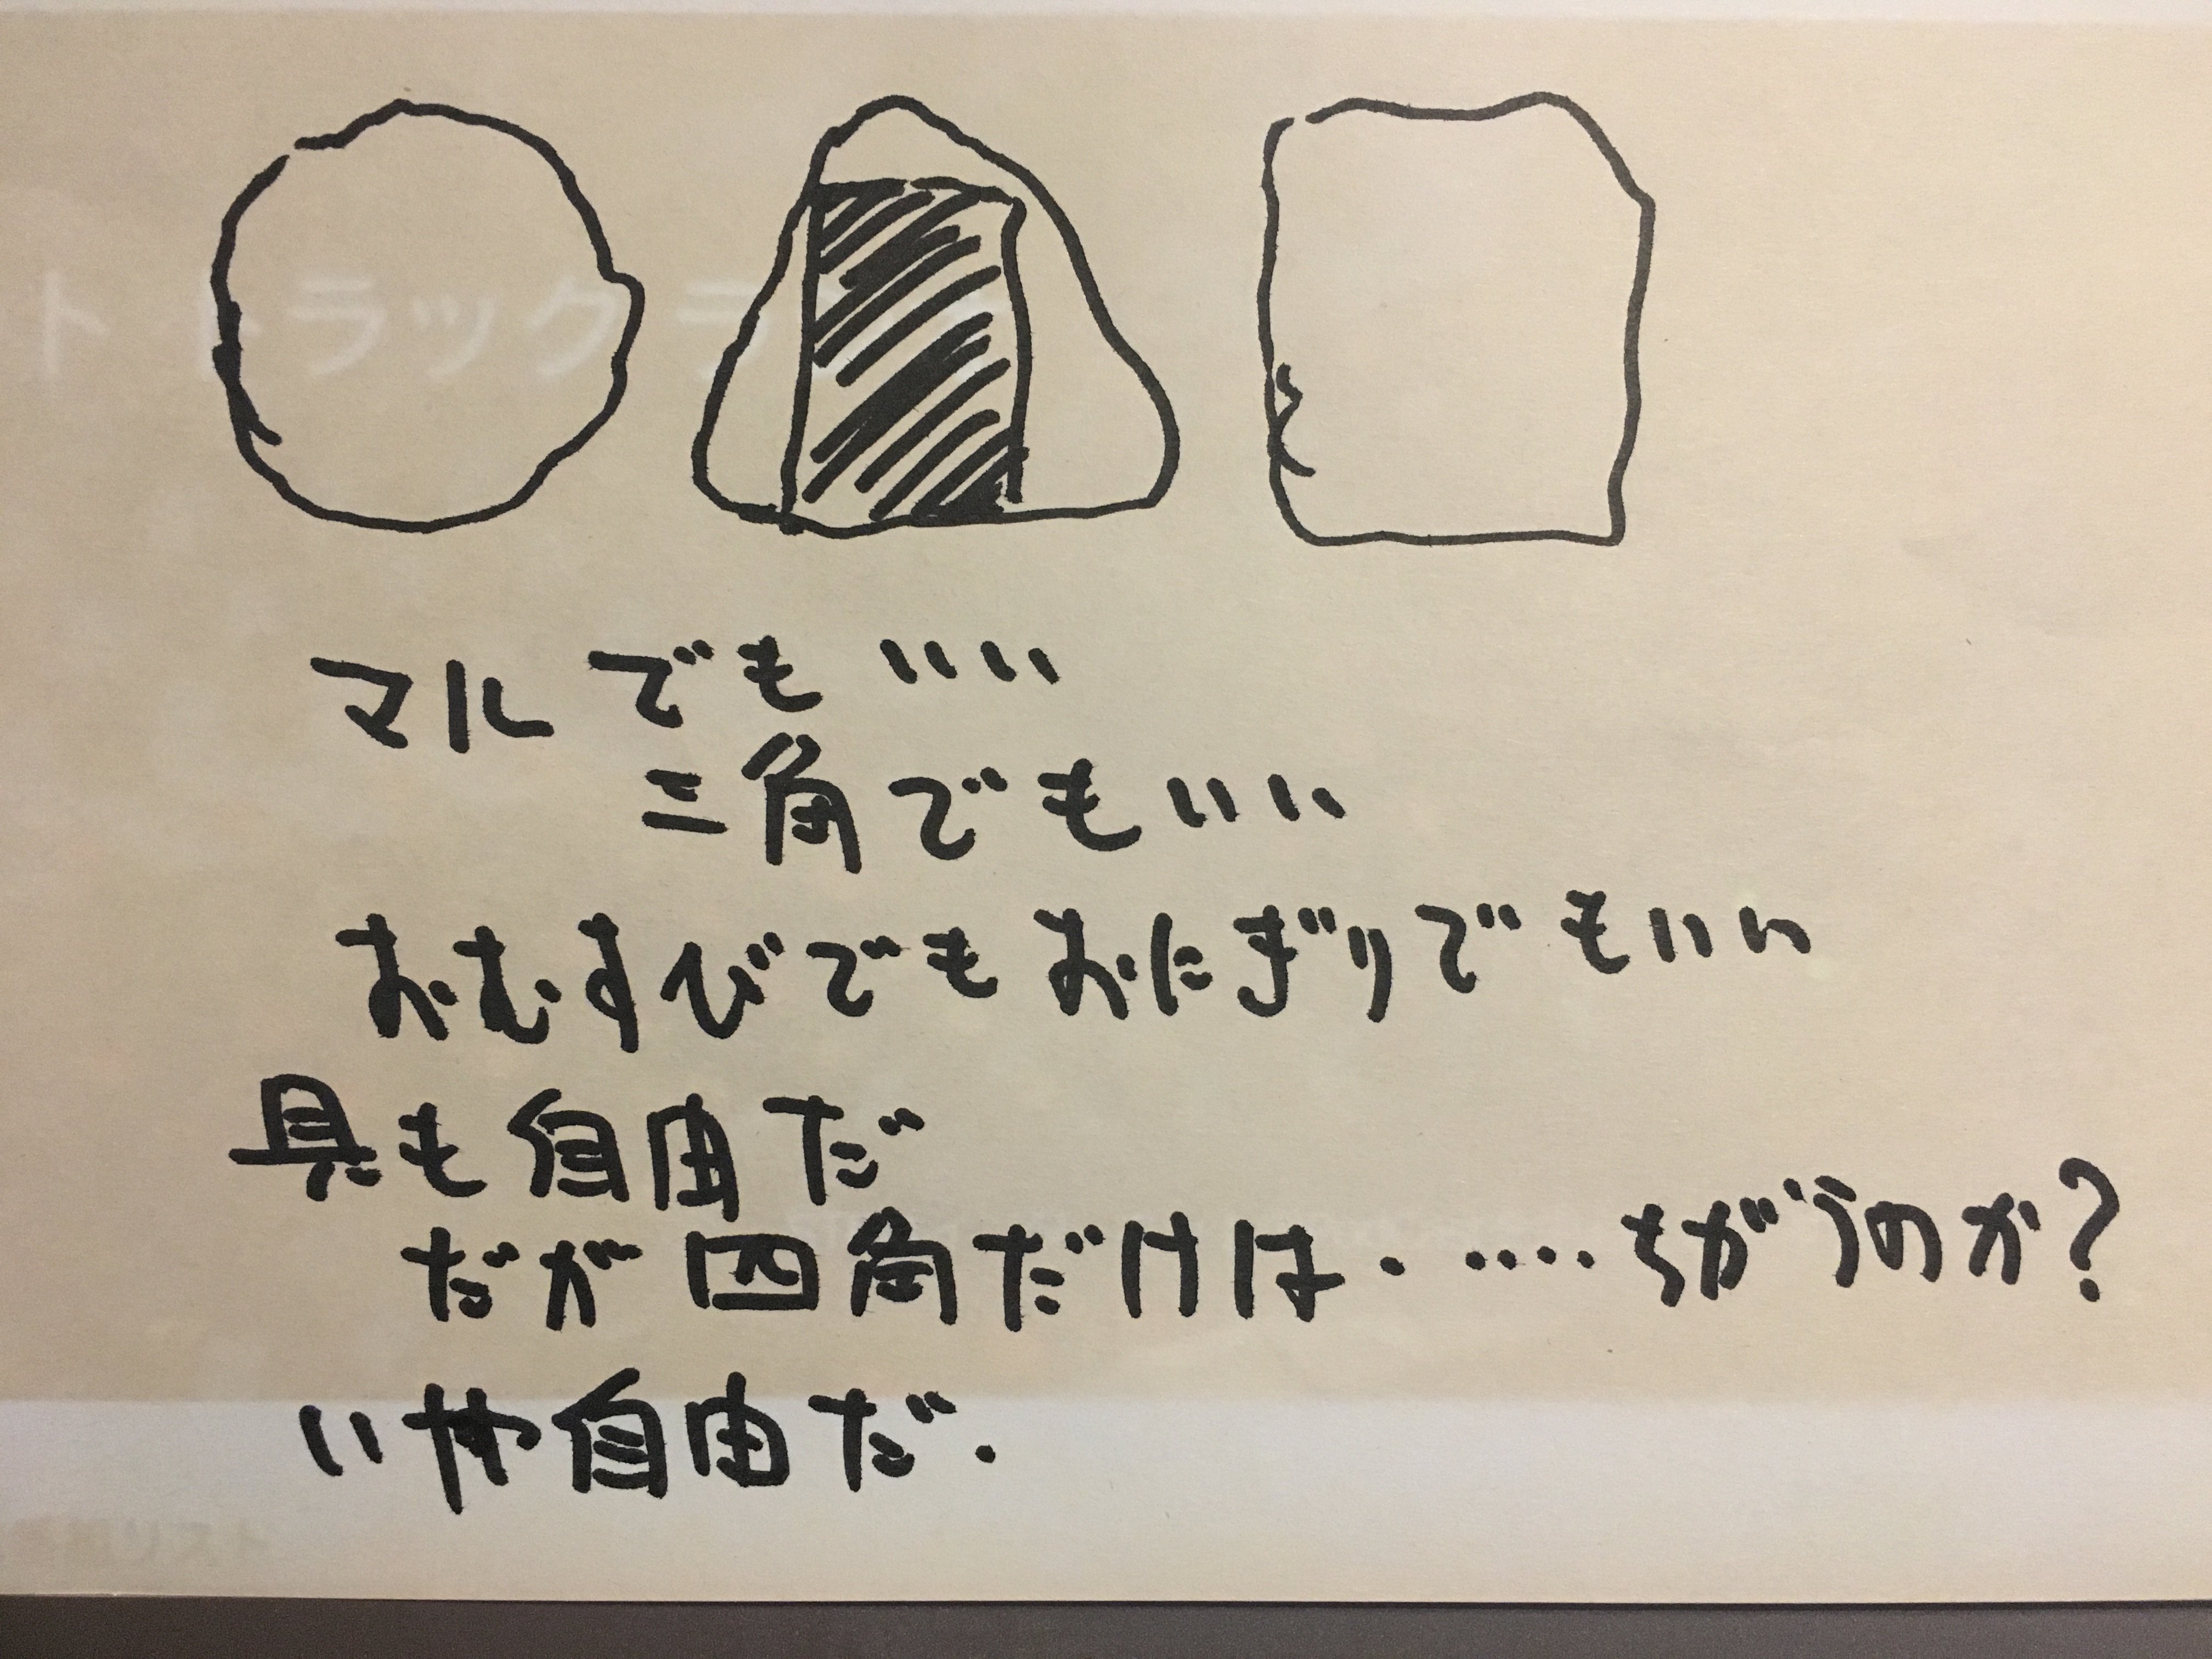 マルでもいい
三角でもいい
おむすびでもおにぎりでもいい
具も自由だ
だが四角だけは・・・・・ちがうのか?
いや自由だ.